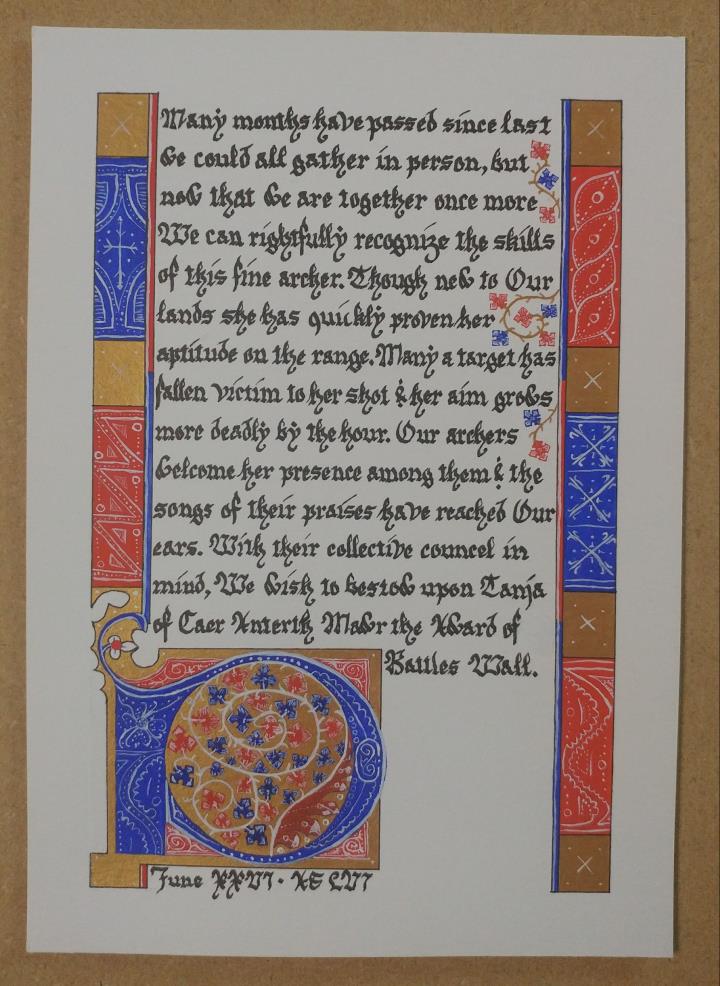 Many months have passed since last
We could all gather in person, but
now that We are together once more
We can rightfully recognize the skills
of this fine archer. Though new to Our
lands she has quickly proven her
aptitude on the range. Many a target has
fallen victim to her shot & her aim grows
more deadly by the hour. Our archers
welcome her presence among them & the
songs of their praises have reached Our
ears. With their collective councel in
mind, We wish to bestow upon Tanja
of Caer Anterth Mawr the Award of
Battles Wall.
June XXVI · AS LVI